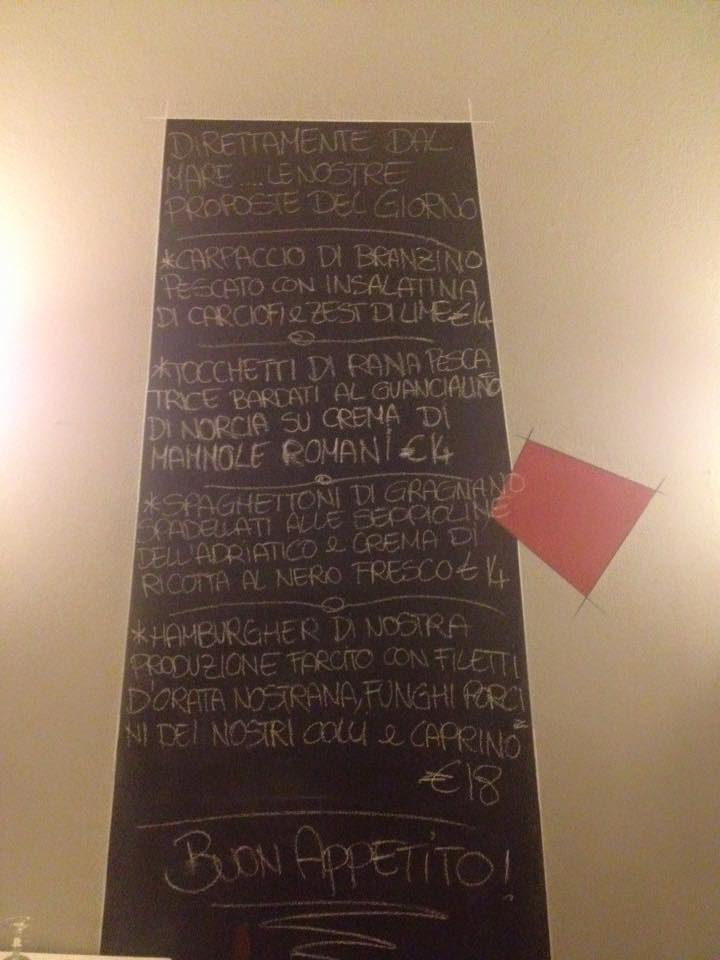 DIRETTAMENTE DAL
MARE .... LE NOSTRE
PROPOSTE DEL GIORNO
*CARPACCIO DI BRANZINO
PESCATO CON INSALATINA
DI CARCIOFI e ZEST DI LIME €14
*TOCCHETTI DI RANA PESCA
TRICE BARDATI AL GUANCIALINO
DI NORCIA SU CREMA DI
MAMMOLE ROMANI €14
*SPAGHETTONI DI GRAGNANO
SPADELLATI ALLE SEPPIOLINE
DELL'ADRIATICO e CREMA DI
RICOTTA AL NERO FRESCO € 14
*HAMBURGHER DI NOSTRA
PRODUZIONE FARCITO CON FILETTI
D'ORATA NOSTRANA, FUNGHI PORCI
NI DEI NOSTRI COLLI e CAPRINO
€18
BUON APPETITO!